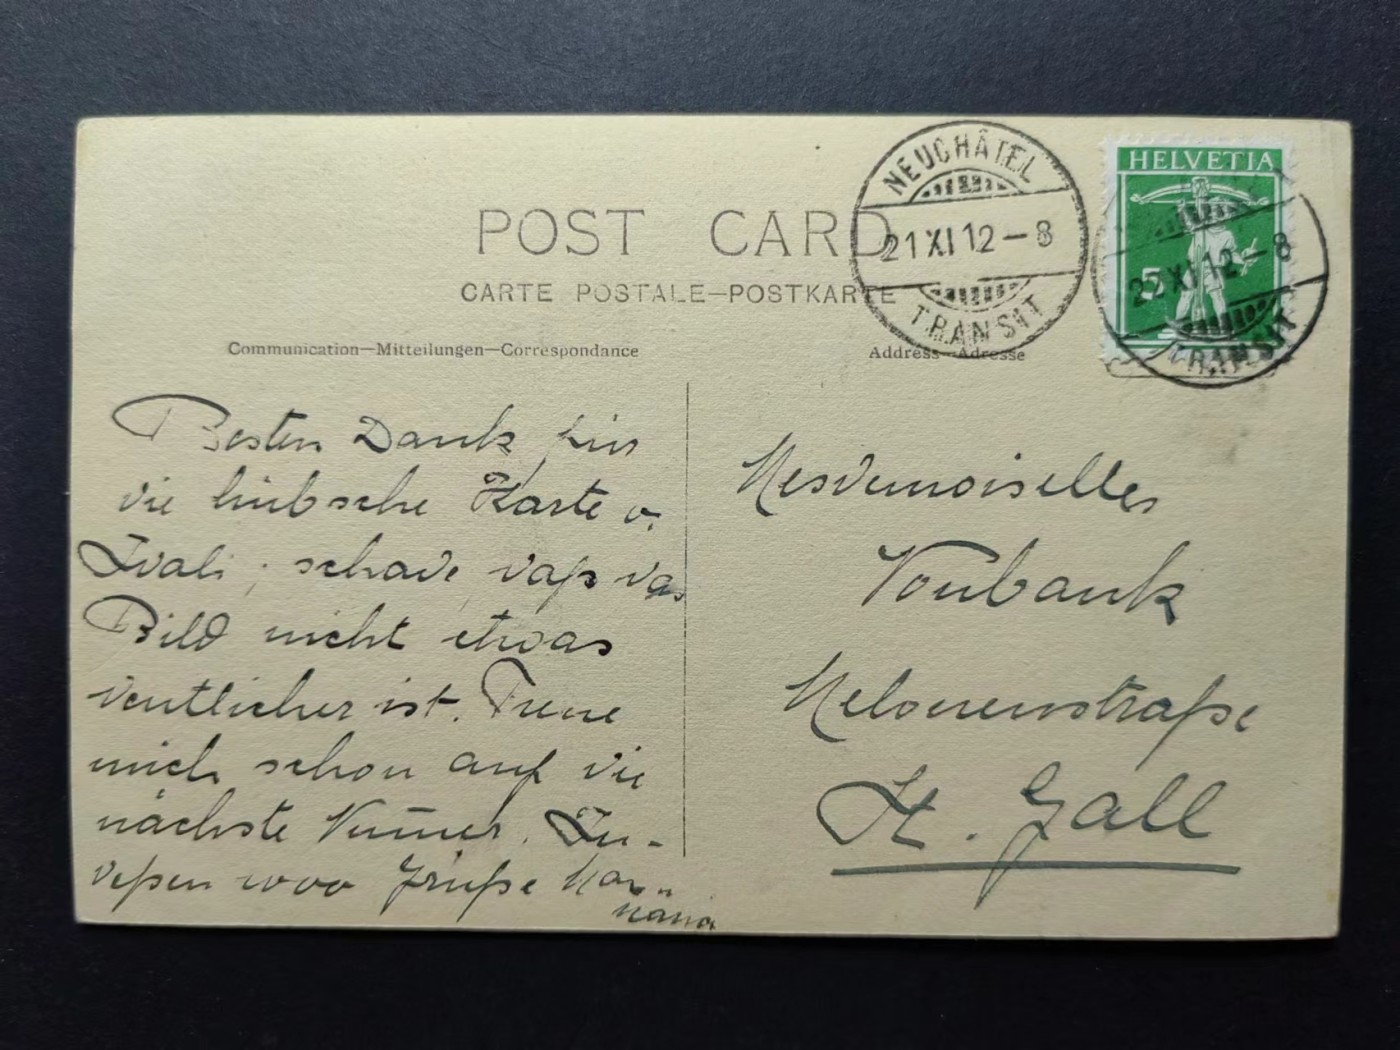 POST CARD
CARTE POSTALE—POSTKARTE
Communication—Mitteilungen—Correspondance
Address—Adresse
NEUCHÂTEL
21 XI 12 – 8
TRANSIT
HELVETIA
5
22 XI 12 – 8
TRANSIT
Besten Dank für
die hübsche Karte v.
schade daß das
Bild nicht etwas
deutlicher ist. Freue
mich schon auf die
nächste Num̅er. In-
deßen 1000 Grüße
Mesdemoiselles
Vonbank
straße
St. Gall